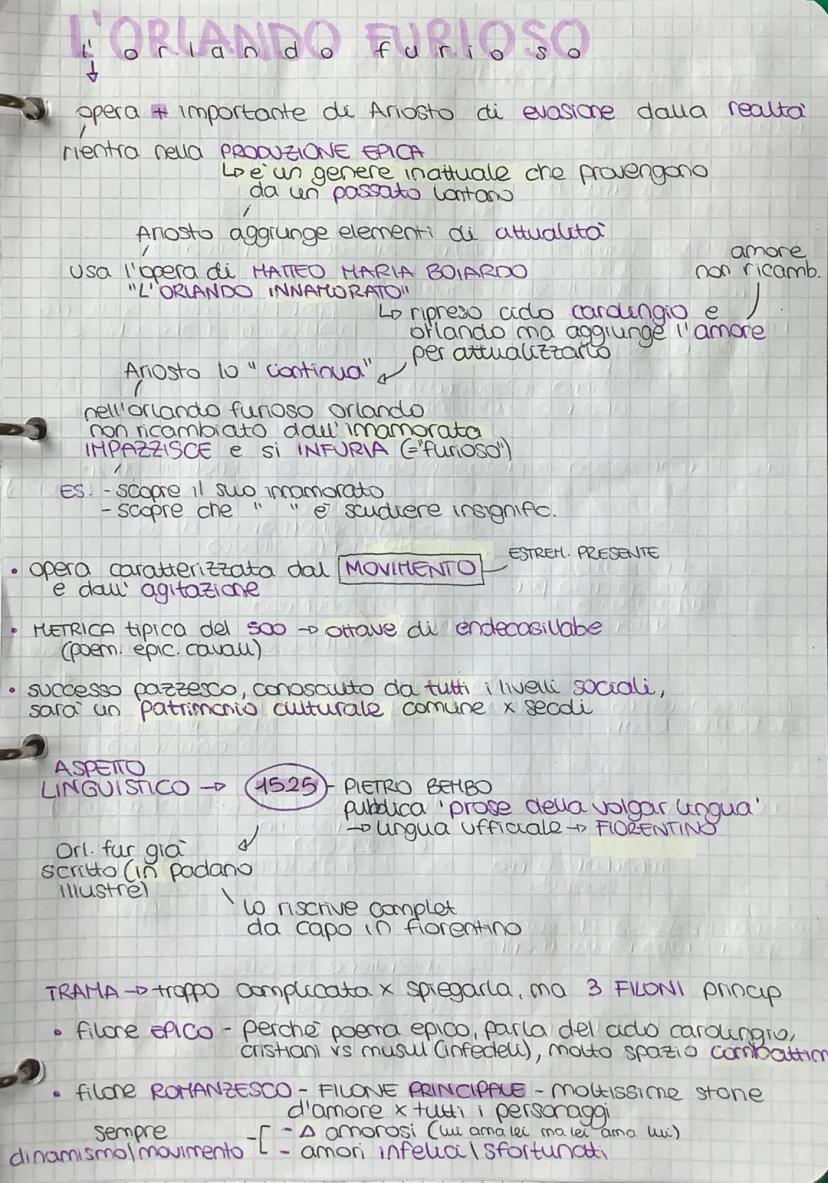 L'ORLANDO FURIOSO
L'orlando furioso
opera + importante di Ariosto di evasione dalla realtà
rientra nella PRODUZIONE EPICA
↳ è un genere inattuale che provengono
da un passato lontano
Ariosto aggiunge elementi di attualità
amore
non ricamb.
usa l'opera di MATTEO MARIA BOIARDO
"L'ORLANDO INNAMORATO"
↳ ripreso ciclo carolingio e
orlando ma aggiunge l'amore
per attualizzarlo
Ariosto lo "continua"
nell'orlando furioso orlando
non ricambiato dall'innamorata
IMPAZZISCE e si INFURIA (="furioso")
ES. - scopre il suo innamorato
- scopre che " " è scudiere insignific.
• opera caratterizzata dal MOVIMENTO
ESTREM. PRESENTE
e dall'agitazione
• METRICA tipica del 500 → ottave di endecasillabe
(poem. epic. cavall)
• successo pazzesco, conosciuto da tutti i livelli sociali,
sarà un patrimonio culturale comune x secoli
ASPETTO
LINGUISTICO → 1525 - PIETRO BEMBO
pubblica 'prose della volgar lingua'
→ lingua ufficiale → FIORENTINO
Orl. fur già
scritto (in padano
illustre)
lo riscrive complet
da capo in fiorentino
TRAMA → troppo complicata x spiegarla, ma 3 FILONI princip
• filone EPICO - perché poema epico, parla del ciclo carolingio,
cristiani vs musul (infedeli), molto spazio combattim
• filone ROMANZESCO - FILONE PRINCIPALE - moltissime storie
d'amore x tutti i personaggi
sempre
dinamismo/movimento
- Δ amorosi (lui ama lei ma lei ama lui)
- amori infelici \ sfortunati